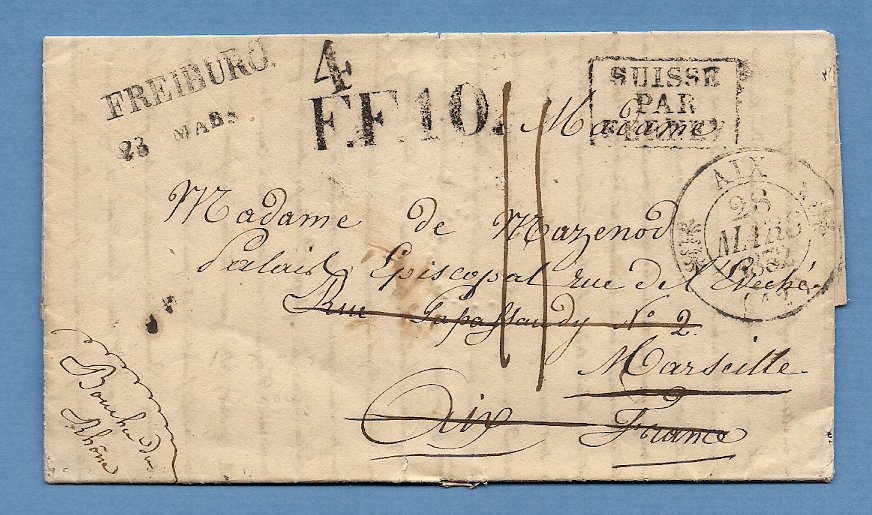 FREIBURG.
23 MARS
4
F.F. 10.
SUISSE
PAR
FERNEY
AIX
28
MARS
1832
(12)
Madame
Madame de Mazenod
Palais Episcopal rue de l'Evêché
Rue Papassaudy No 2.
Marseille.
Aix France
Bouche du
Rhône